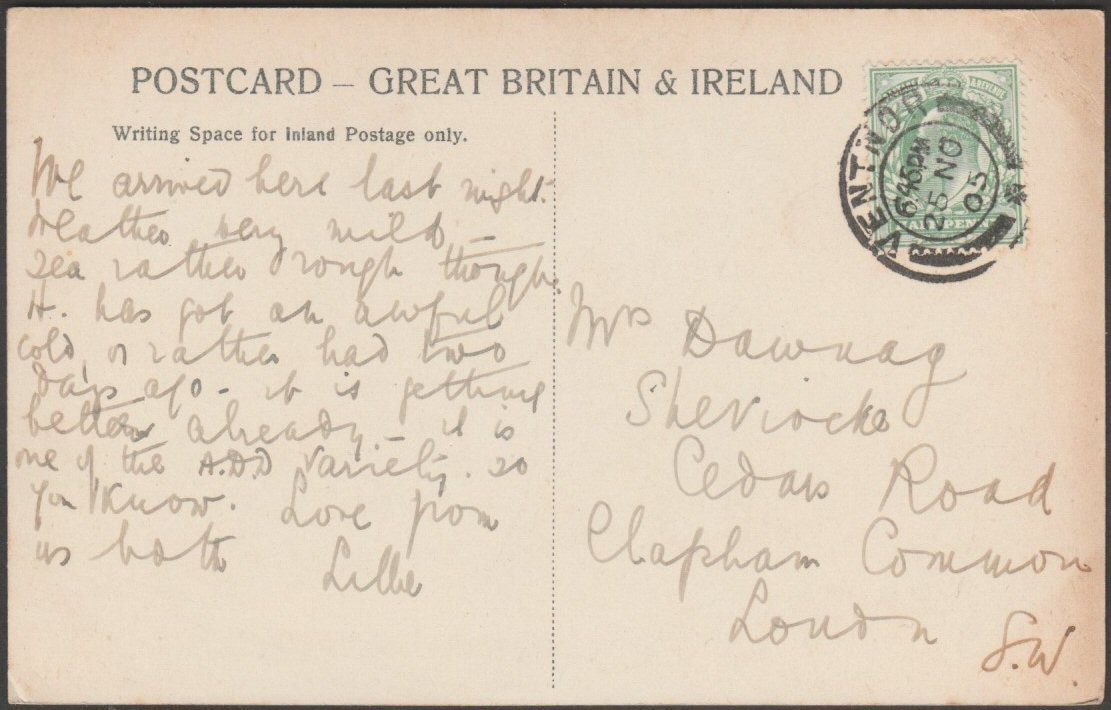 POSTCARD – GREAT BRITAIN & IRELAND
Writing Space for Inland Postage only.
We arrived here last night.
Weather very mild –
sea rather rough though.
H. has got an awful
cold, or rather had two
days ago – it is getting
better already – it is
one of the A.D.D variety. so
you know. Love from
us both
Lillie
VENTNOR
6.45PM
25 NO
05
Mrs Dawnay
Sheviocke
Cedars Road
Clapham Common
London
S.W.